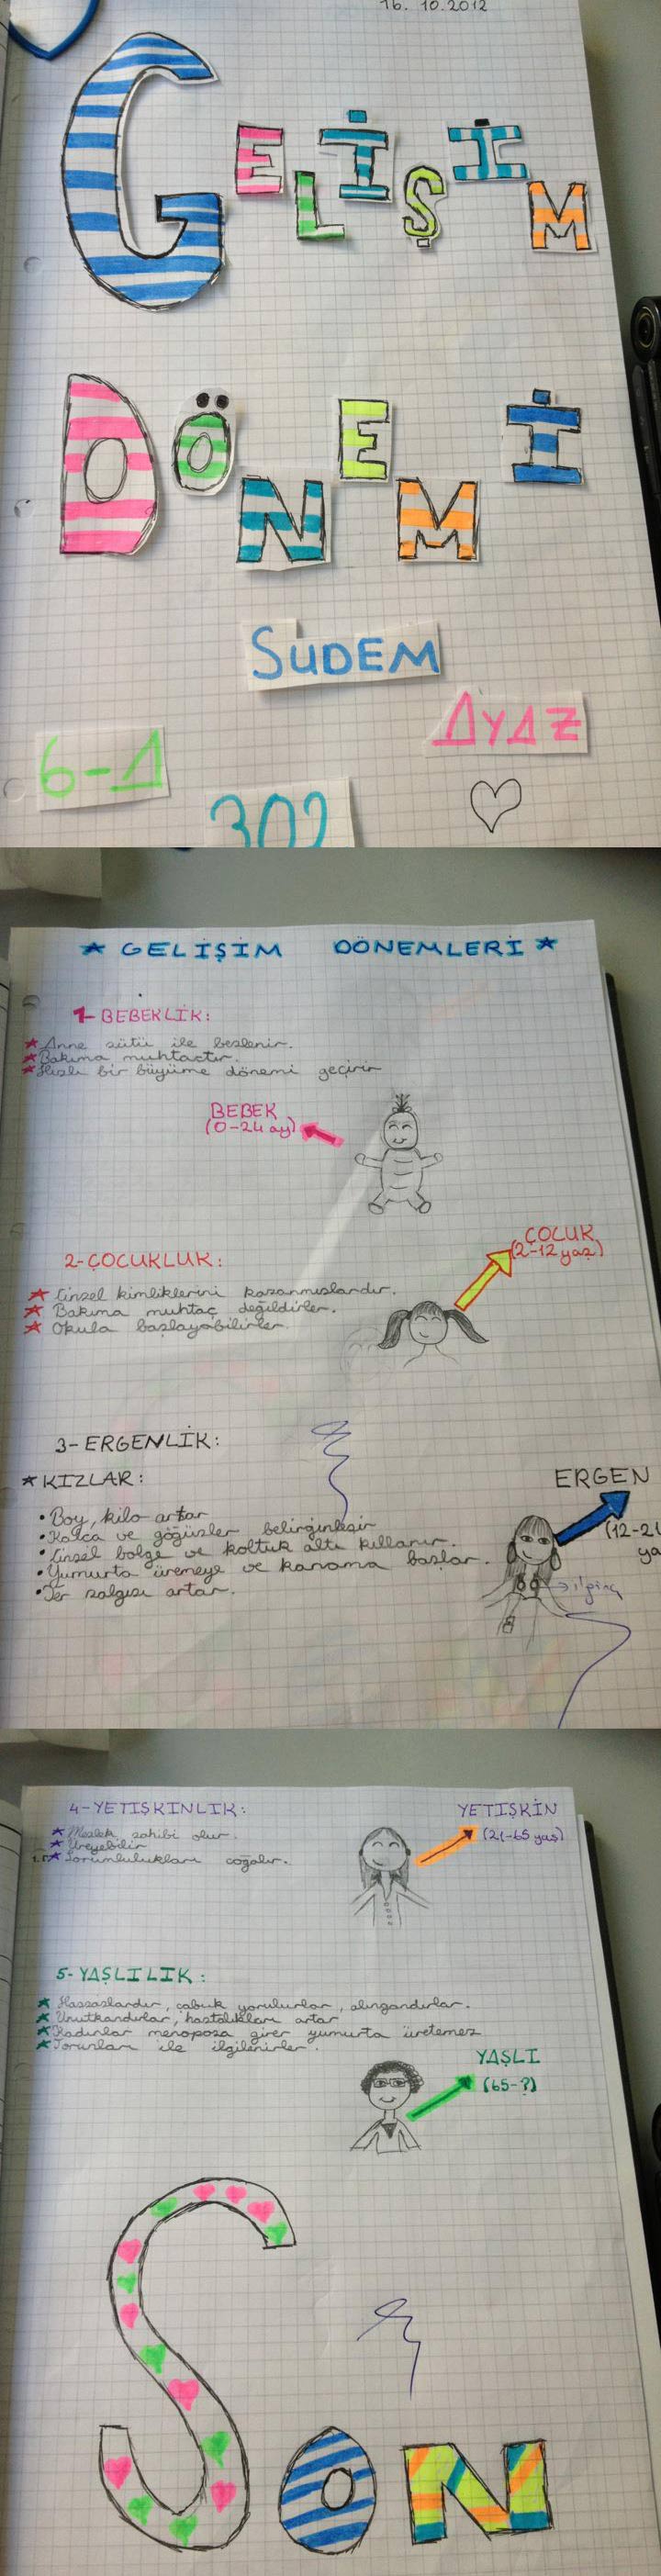 16. 10. 2012
GELİŞİM
DÖNEMİ
SUDEM
AYAZ
6-A
302
★ GELİŞİM DÖNEMLERİ ★
1- BEBEKLİK:
★ Anne sütü ile beslenir.
★ Bakıma muhtaçtır.
★ Hızlı bir büyüme dönemi geçirir
BEBEK
(0-24 ay)
ÇOCUK
(2-12 yaş)
2-ÇOCUKLUK:
★ Cinsel kimliklerini kazanmışlardır.
★ Bakıma muhtaç değildirler.
★ Okula başlayabilirler.
3- ERGENLİK:
★ KIZLAR:
ERGEN
(12-21
ya
• Boy, kilo artar
• Kalça ve göğüsler belirginleşir
• Cinsel bölge ve koltuk altı kıllanır.
• Yumurta üremeye ve kanama başlar.
• Ter salgısı artar.
→ ilginç
4-YETİŞKİNLİK:
YETİŞKİN
(21-65 yaş)
★ Meslek sahibi olur.
★ Üreyebilir
★ Sorumlulukları çoğalır.
5- YAŞLILIK:
★ Hassaslardır, çabuk yorulurlar, alıngandırlar.
★ Unutkandırlar, hastalıkları artar
★ Kadınlar menopoza girer yumurta üretemez
★ Torunları ile ilgilenirler.
YAŞLI
(65-?)
SON